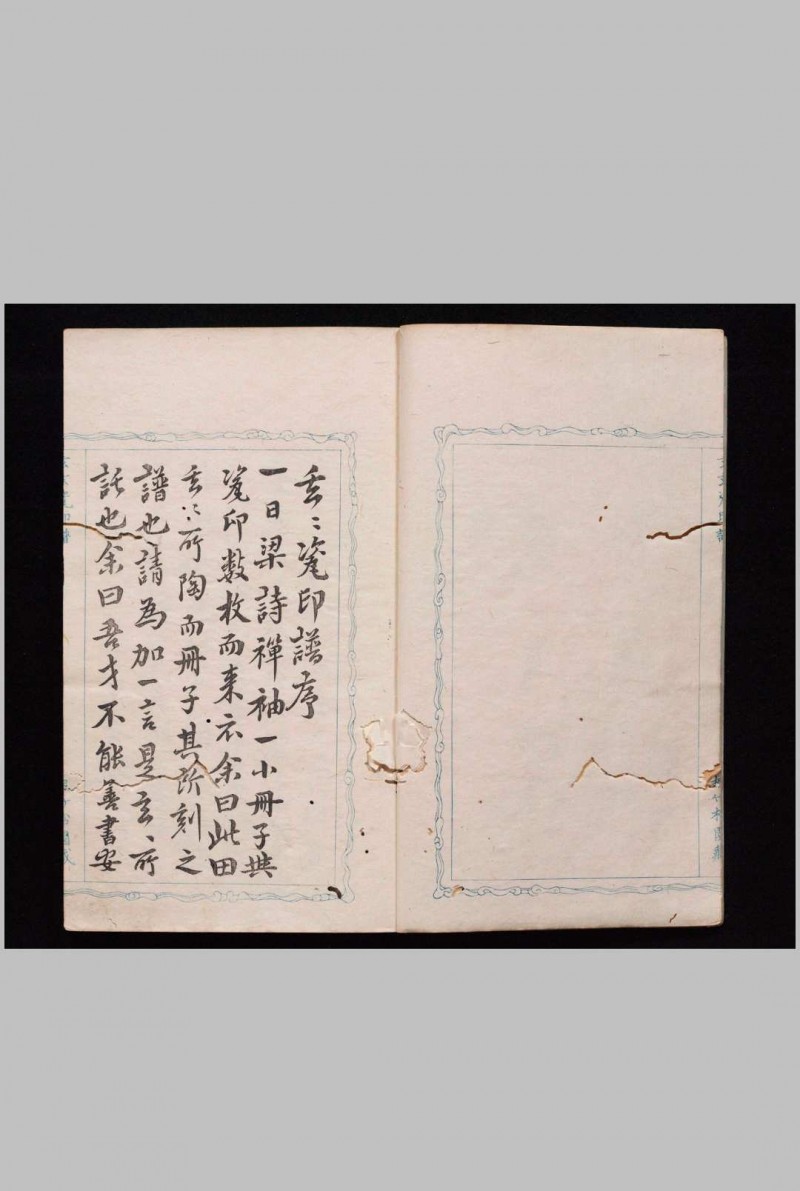 玄〻瓷印譜序
一日梁詩禪袖一小冊子與
瓷印数枚而来示余曰此田
玄〻所陶而冊子其所刻之
譜也請為加一言是玄〻所
託也余曰吾才不能善書安